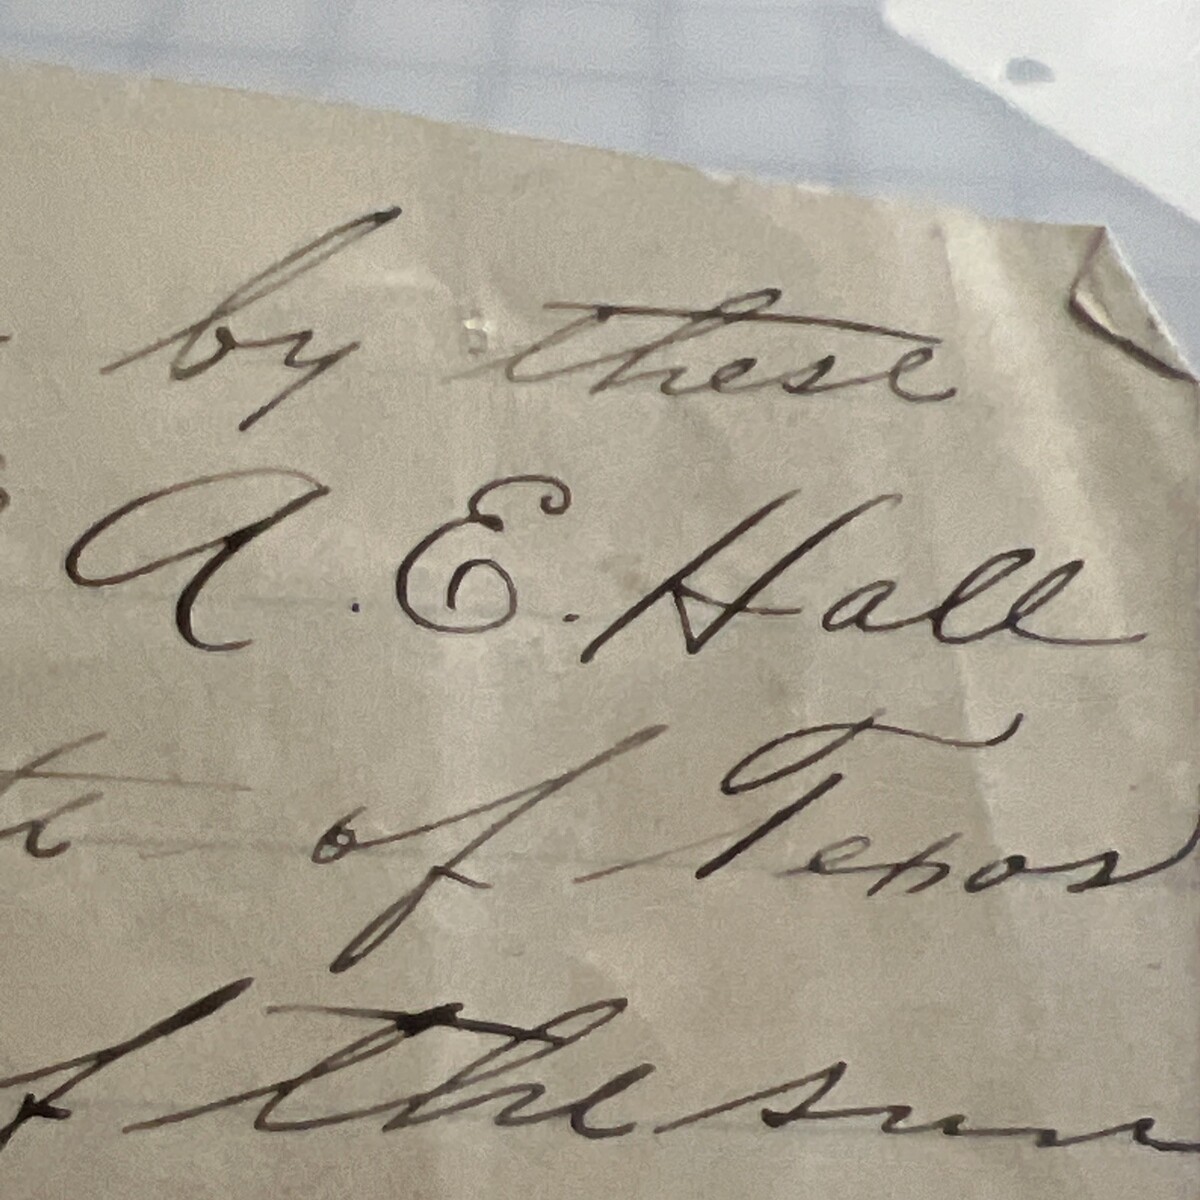 by these
A. E. Hall
of Texas
of the sum